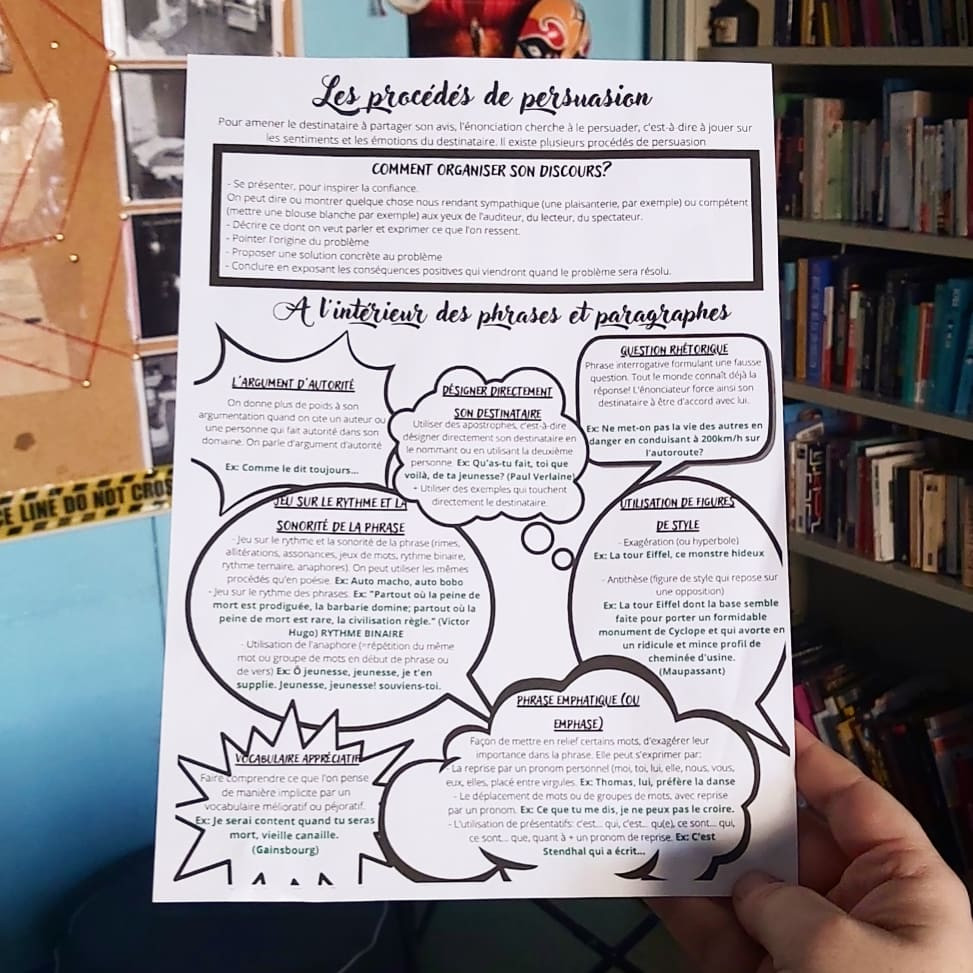 Les procédés de persuasion
Pour amener le destinataire à partager son avis, l'énonciation cherche à le persuader, c'est-à-dire à jouer sur
les sentiments et les émotions du destinataire. Il existe plusieurs procédés de persuasion
COMMENT ORGANISER SON DISCOURS?
- Se présenter, pour inspirer la confiance.
On peut dire ou montrer quelque chose nous rendant sympathique (une plaisanterie, par exemple) ou compétent
(mettre une blouse blanche par exemple) aux yeux de l'auditeur, du lecteur, du spectateur.
- Décrire ce dont on veut parler et exprimer ce que l'on ressent.
- Pointer l'origine du problème
- Proposer une solution concrète au problème
- Conclure en exposant les conséquences positives qui viendront quand le problème sera résolu.
A l'intérieur des phrases et paragraphes
L'ARGUMENT D'AUTORITÉ
On donne plus de poids à son
argumentation quand on cite un auteur ou
une personne qui fait autorité dans son
domaine. On parle d'argument d'autorité
Ex: Comme le dit toujours...
DÉSIGNER DIRECTEMENT
SON DESTINATAIRE
Utiliser des apostrophes, c'est-à-dire
désigner directement son destinataire en
le nommant ou en utilisant la deuxième
personne. Ex: Qu'as-tu fait, toi que
voilà, de ta jeunesse? (Paul Verlaine)
+ Utiliser des exemples qui touchent
directement le destinataire.
QUESTION RHÉTORIQUE
Phrase interrogative formulant une fausse
question. Tout le monde connaît déjà la
réponse! L'énonciateur force ainsi son
destinataire à être d'accord avec lui.
Ex: Ne met-on pas la vie des autres en
danger en conduisant à 200km/h sur
l'autoroute?
CE LINE DO NOT CROS
JEU SUR LE RYTHME ET LA
SONORITÉ DE LA PHRASE
- Jeu sur le rythme et la sonorité de la phrase (rimes,
allitérations, assonances, jeux de mots, rythme binaire,
rythme ternaire, anaphores). On peut utiliser les mêmes
procédés qu'en poésie. Ex: Auto macho, auto bobo
- Jeu sur le rythme des phrases. Ex: "Partout où la peine de
mort est prodiguée, la barbarie domine; partout où la
peine de mort est rare, la civilisation règle." (Victor
Hugo) RYTHME BINAIRE
- Utilisation de l'anaphore (=répétition du même
mot ou groupe de mots en début de phrase ou
de vers) Ex: Ô jeunesse, jeunesse, je t'en
supplie. Jeunesse, jeunesse! souviens-toi.
UTILISATION DE FIGURES
DE STYLE
- Exagération (ou hyperbole)
Ex: La tour Eiffel, ce monstre hideux
- Antithèse (figure de style qui repose sur
une opposition)
Ex: La tour Eiffel dont la base semble
faite pour porter un formidable
monument de Cyclope et qui avorte en
un ridicule et mince profil de
cheminée d'usine.
(Maupassant)
VOCABULAIRE APPRÉCIATIF
Faire comprendre ce que l'on pense
de manière implicite par un
vocabulaire mélioratif ou péjoratif.
Ex: Je serai content quand tu seras
mort, vieille canaille.
(Gainsbourg)
PHRASE EMPHATIQUE (OU
EMPHASE)
Façon de mettre en relief certains mots, d'exagérer leur
importance dans la phrase. Elle peut s'exprimer par:
- La reprise par un pronom personnel (moi, toi, lui, elle, nous, vous,
eux, elles, placé entre virgules. Ex: Thomas, lui, préfère la danse
- Le déplacement de mots ou de groupes de mots, avec reprise
par un pronom. Ex: Ce que tu me dis, je ne peux pas le croire.
- L'utilisation de présentatifs: c'est... qui, c'est... qu(e), ce sont... qui,
ce sont... que, quant à + un pronom de reprise. Ex: C'est
Stendhal qui a écrit...